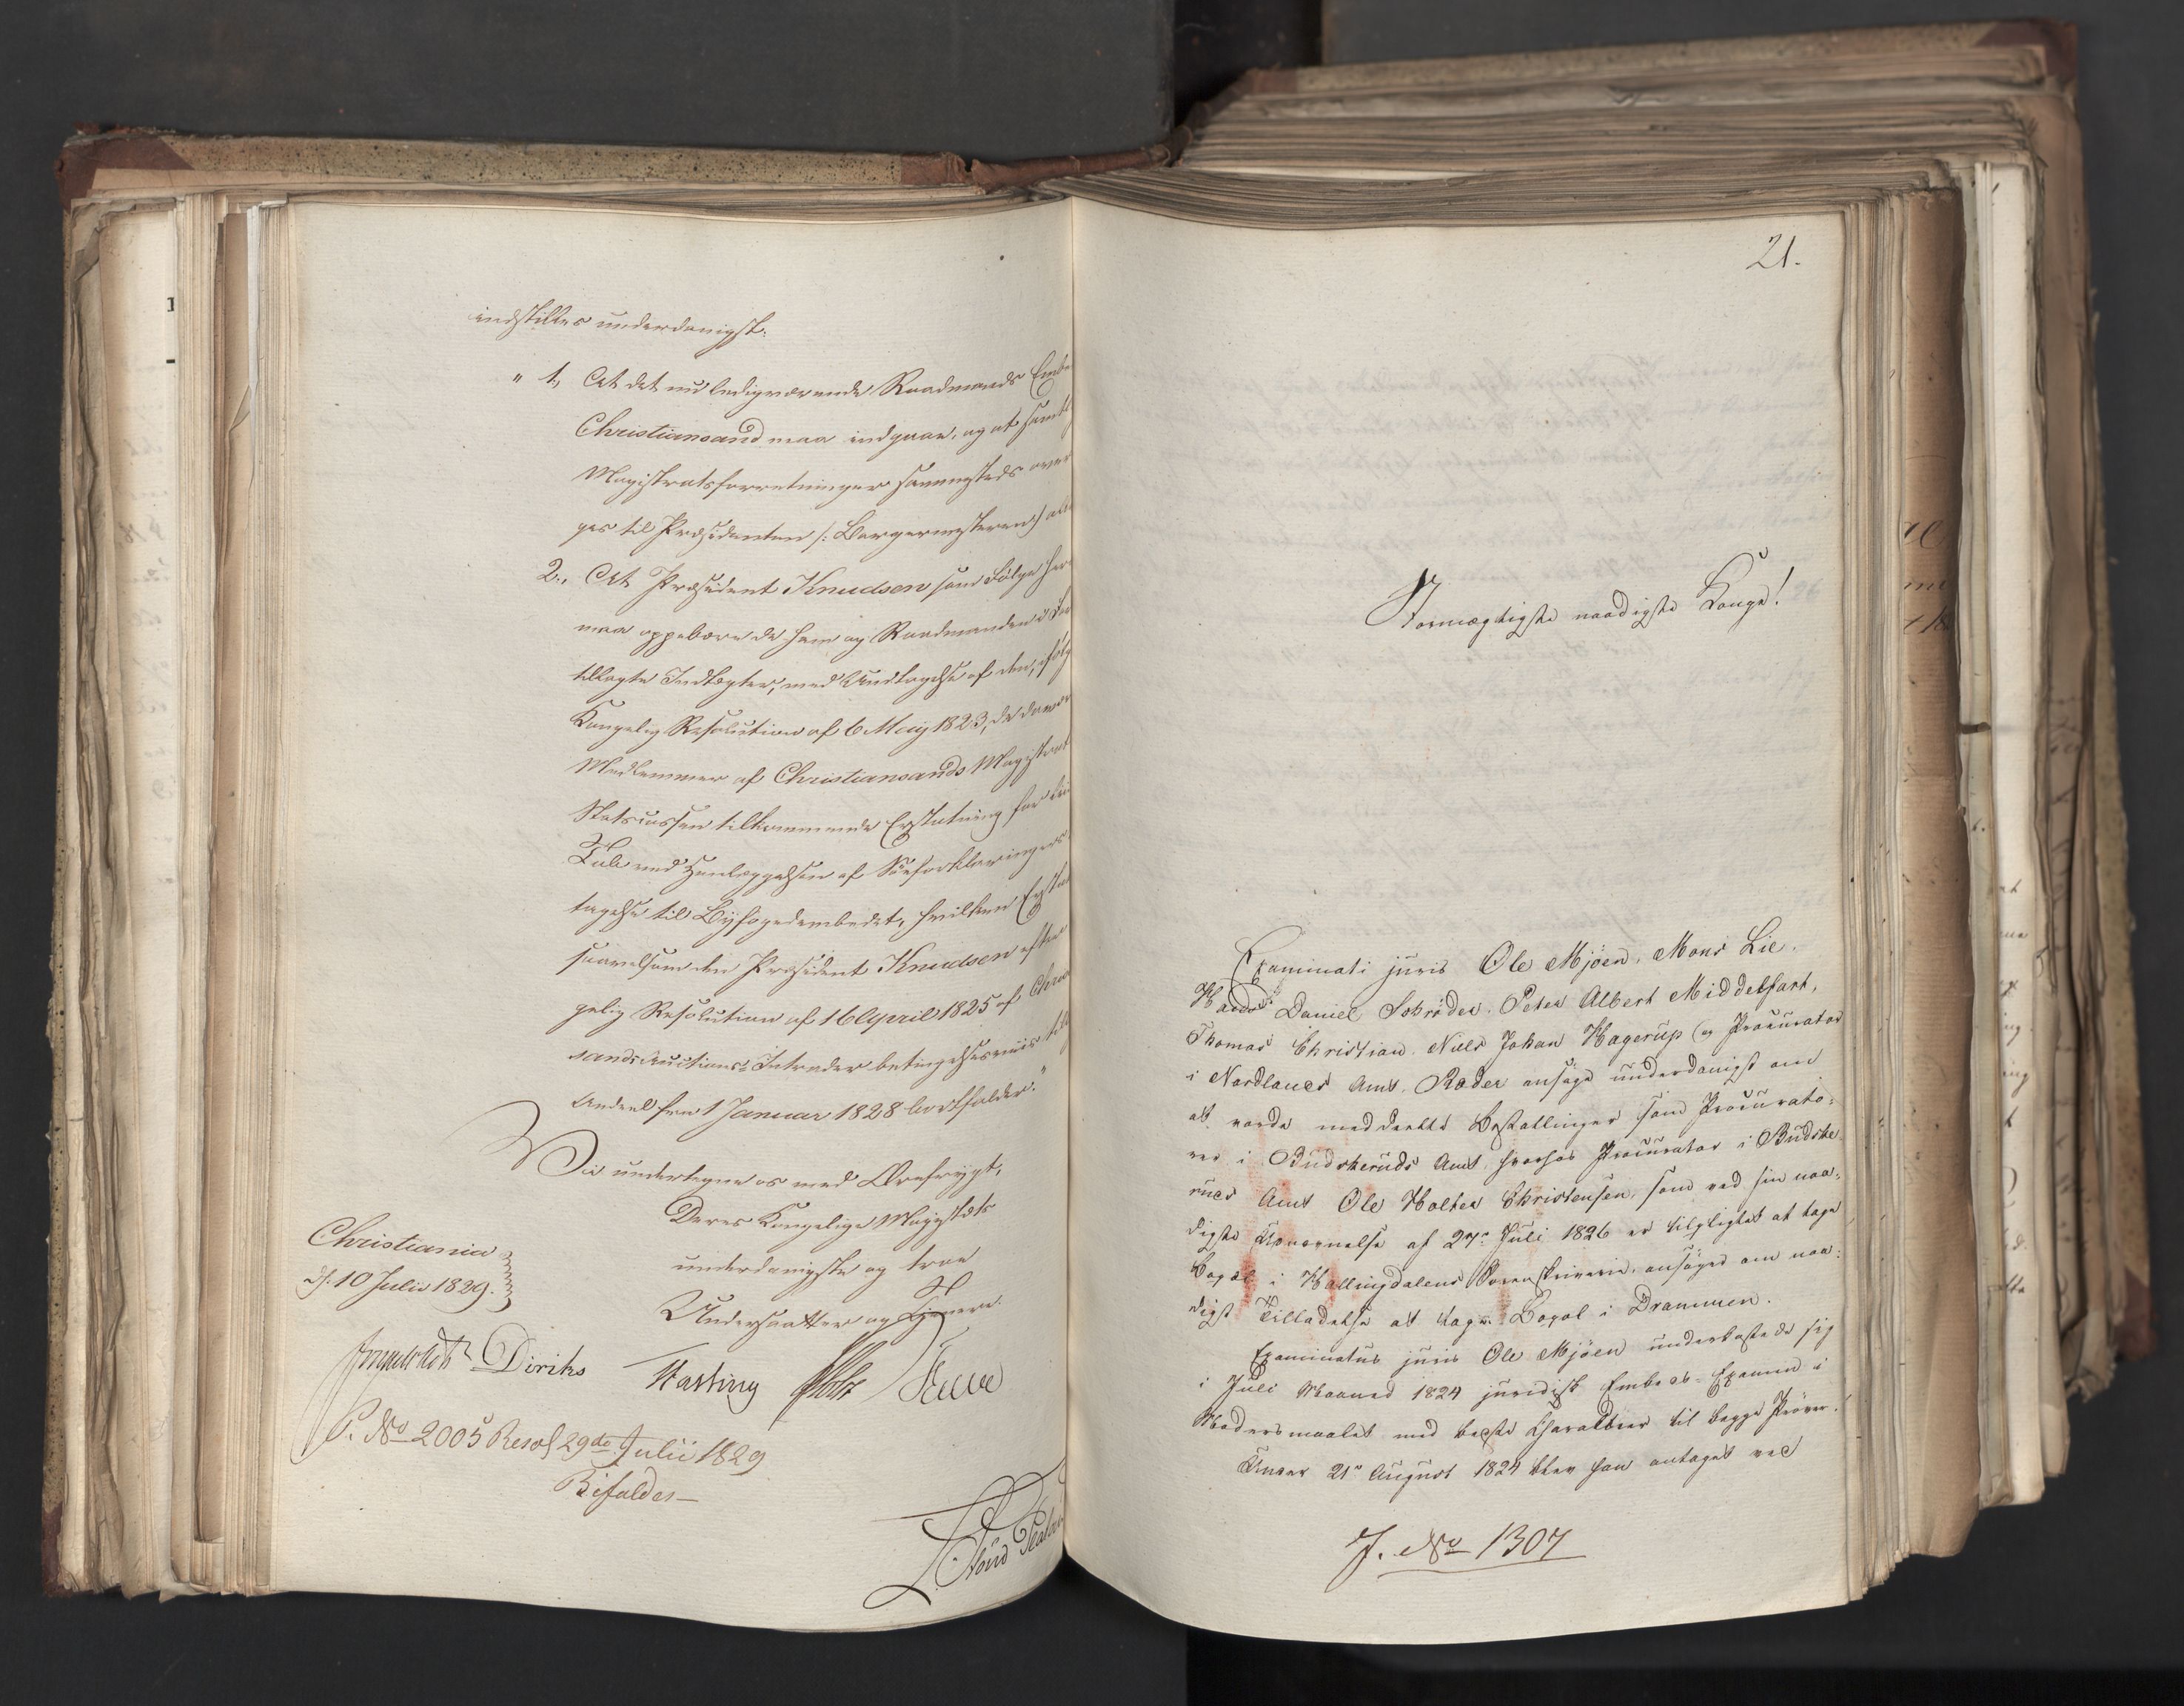 indstilles underdanigst:
" 1., At det nu ledigværende Raadmands Embe
Christiansand maa indgaae, og at samt
Magistratsforretninger sammesteds over
ges til Præsidenten /: Borgermesteren :/
2., At Præsident Knudsen som Følge her
maa oppebære de ham og Raadmanden i
tillagte Indtægter, med Undtagelse af den, ifølg
Kongelig Resolution af 6 May 1823, de davær
Medlemmer af Christiansands Magistrat
Statscassen tilkommende Erstatning for
Tab ved Henlæggelsen af Søeforklaringers
tagelse til Byfogedembedet, hvilken Erstat
saavelsom den Præsident Knudsen efter
gelig Resolution af 16 April 1825 af Chris
sands Auctions Intrader betingelsesviis till
Andeel fra 1 Januar 1828 bortfalder."
Vi undertegne os med Ærefrygt,
Deres Kongelige Majestæts
underdanigste og troe
Undersaatter og Tjenere.
Christiania
d. 10 Julii 1829.
Diriks
P. No 2005 Resol 29de Julii 1829
Bifaldes—
21.
Stormægtigste naadigste Konge!
Examinati juris Ole Mjöen, Mons Lie,
Hans Daniel Schröder, Peter Albert Middelfart,
Thomas Christian, Niels Johan Hagerup og Procurator
i Nordlands Amt, Ræder ansøge underdanigst om
at vorde meddeelte Bestallinger som Procurato-
rer i Budskeruds Amt, hvorhos Procurator i Budske-
ruds Amt Ole Holter Christensen, som ved sin naa-
digste Udnævnelse af 27de Juli 1826 er tilpligtet at tage
Bopæl i Hallingdalens Sorenskriverie, ansøger om naa-
digst Tilladelse at tage Bopæl i Drammen.
Examinatus juris Ole Mjöen underkastede sig
i Juli Maaned 1824 juridisk Embeds-Examen i
Modersmaalet med beqste Charakteer til begge Prøver.
Under 21de August 1824 blev han antaget ved
J. No 1307